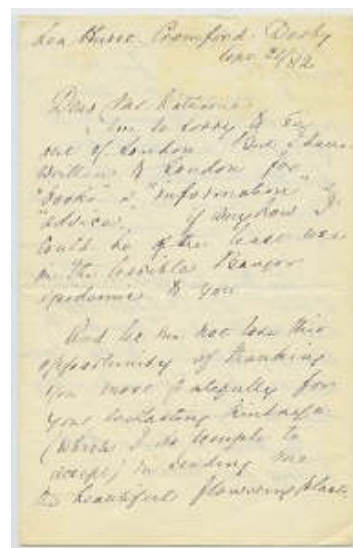 Lea Hurst Cromford Derby
Sept 21/82
Dear
I'm so sorry to be
out of London But I have
written to London for
"books" & "information" &
"advice" if anyhow I
could be of the least use
in the terrible Bangor
epidemic to you
And let me not lose this
opportunity of thanking
you most gratefully for
your everlasting kindness
(which I do to
accept) in sending me
beautiful flowering plants